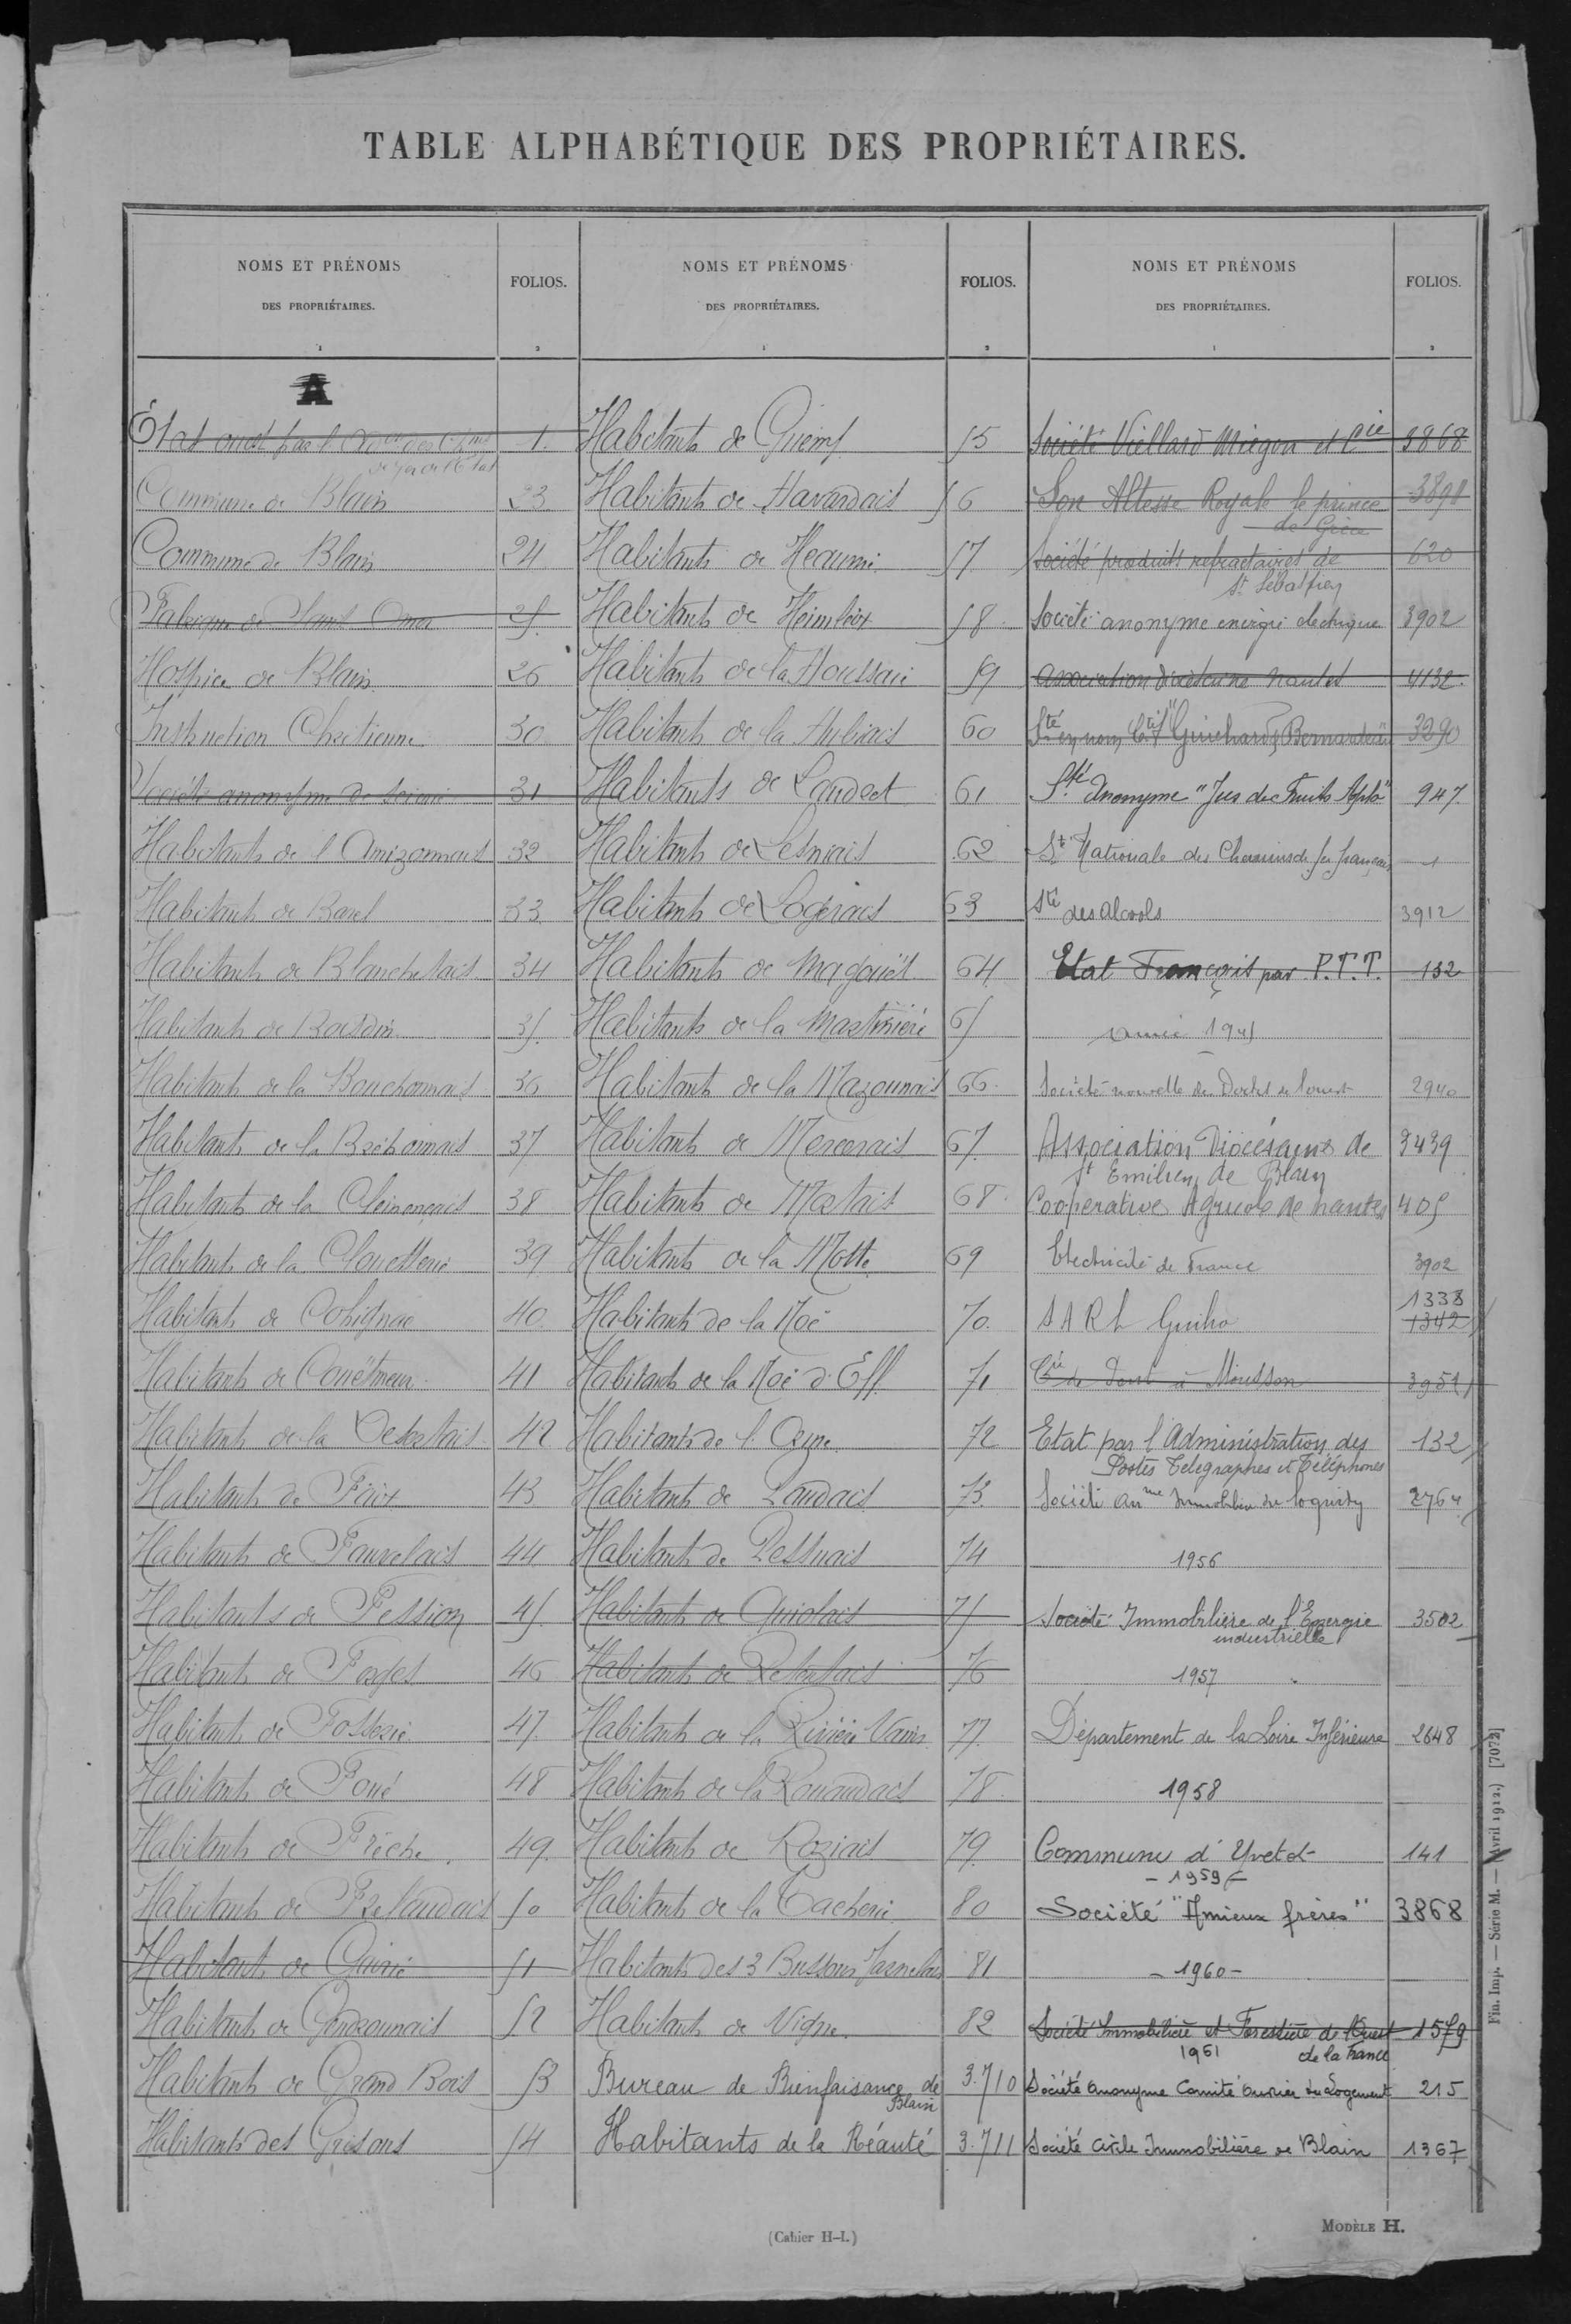 TABLE ALPHABÉTIQUE DES PROPRIÉTAIRES.
NOMS ET PRÉNOMS
DES PROPRIÉTAIRES.
1
FOLIOS.
2
A
État 1
Commune de Blain 23
Commune de Blain 24
Fabrique de Saint Omer 25
Hospice de Blain 26
Instruction Chretienne 30
Société anonyme de 31
Habitants de l'Amizonnais 32
Habitants de Barel 33
Habitants de Blanchetais 34
Habitants de Boisdin 35
Habitants de la Bouchonnais 36
Habitants de la Bréhonnais 37
Habitants de la 38
Habitants de la 39
Habitants de Cohignac 40
Habitants de Couëtmeur 41
Habitants de la 42
Habitants de 43
Habitants de Fauvelais 44
Habitants de Fession 45
Habitants de Forges 46
Habitants de Fosserie 47
Habitants de Foué 48
Habitants de Frèche 49
Habitants de Frelaudais 50
Habitants de 51
Habitants de 52
Habitants de Grand Bois 53
Habitants des Grisons 54
NOMS ET PRÉNOMS
DES PROPRIÉTAIRES.
1
FOLIOS.
2
Habitants de 55
Habitants de Havardais 56
Habitants de 57
Habitants de 58
Habitants de la Houssaie 59
Habitants de la Hubiais 60
Habitants de Landect 61
Habitants de 62
Habitants de Logerais 63
Habitants de Magouët 64
Habitants de la Martinière 65
Habitants de la Mazonnais 66
Habitants de Mercerais 67
Habitants de 68
Habitants de la Motte 69
Habitants de la Noë 70
Habitants de la Noë d'Eff 71
Habitants de l' 72
Habitants de 73
Habitants de 74
Habitants de 75
Habitants de 76
Habitants de la Rivière 77
Habitants de la Rouaudais 78
Habitants de Roziais 79
Habitants de la Tacherie 80
Habitants des 3 81
Habitants de Vigne 82
Bureau de Bienfaisance de 3.710
Blain
Habitants de la Réauté 3.711
NOMS ET PRÉNOMS
DES PROPRIÉTAIRES.
1
FOLIOS.
2
Société Viellard Miegon et Cie 3868
Son Altesse Royale le prince 3898
de Grèce
Société produits refractaires de 620
St Sébastien
Société anonyme energie electrique 3902
Association diocésaine Nantes 4132
Sté en nom Ctif "Guichard & Bernardeau" 3290
Sté Anonyme "Jus de Fruits 947
Sté Nationale des Chemins de fer français 1
Sté des alcools 3912
Etat Français par P.T.T. 132
année 1941
Société nouvelle des Docks de l'ouest 2940
Association Diocésaine de 3439
St Emilien de Blain
Coopérative Agricole de Nantes 405
Electricité de France 3902
1338
SARL Guiho 1342
Cie de Pont à Mousson 3951
Etat par l'Administration des 132
Postes Télégraphes et Téléphones
Société Anme Immobilière du 2764
1956
Société Immobilière de l'Energie 3502
industrielle
1957
Département de la Loire Inférieure 2648
1958
Commune d'Yvetot 141
- 1959 -
Société "Amieux frères" 3868
- 1960 -
Société Immobilière et Forestière de l'Ouest 1579
1961 de la France
Société Anonyme Comité Ouvrier du Logement 215
Société Civile Immobilière de Blain 1367
Fin. Imp. — Série M. — (Avril 1912.) [7072]
(Cahier H-I.)
MODÈLE H.